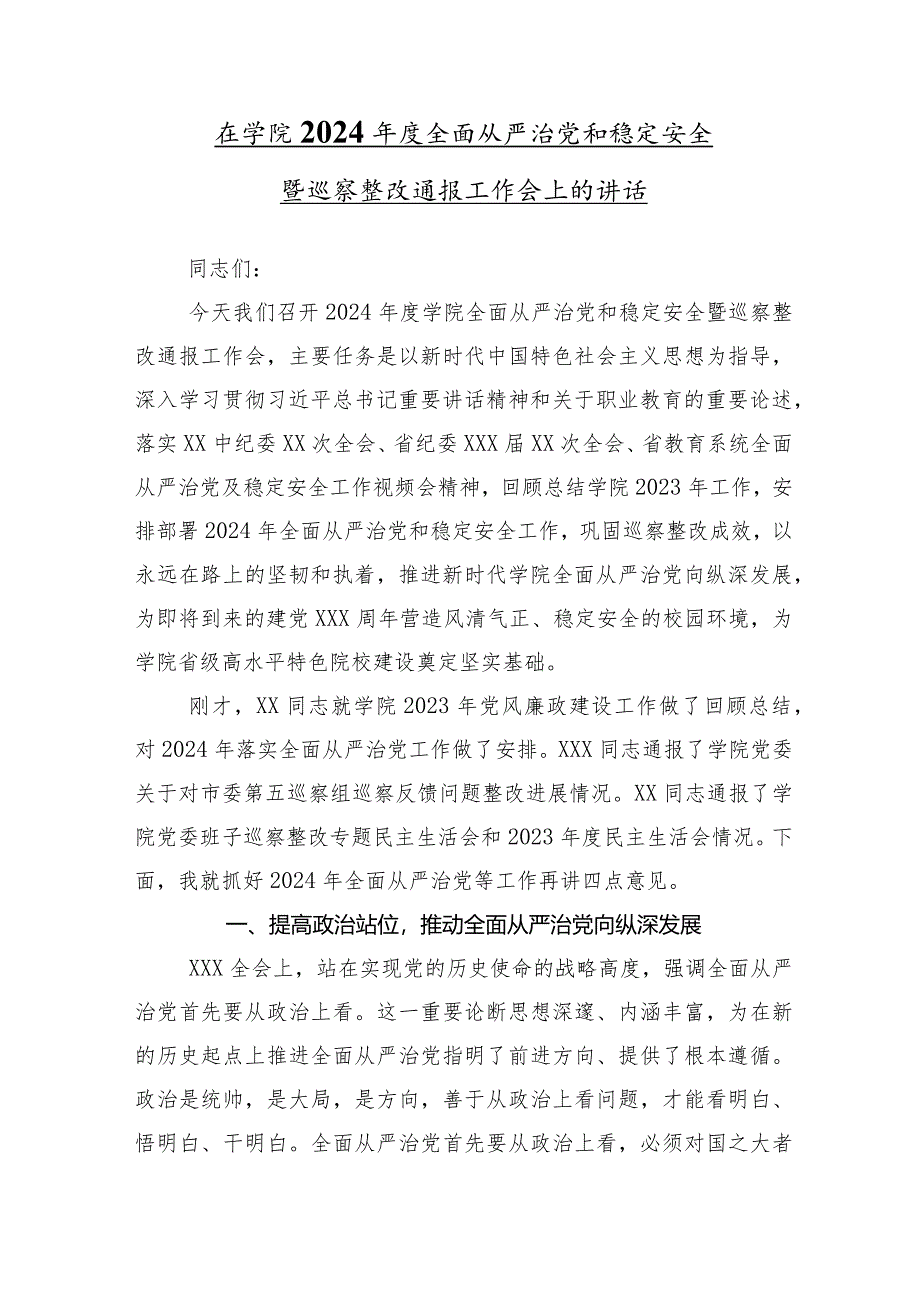 在学院 2024 年度全面从严治党和稳定安全
暨巡察整改通报工作会上的讲话
同志们：
今天我们召开 2024 年度学院全面从严治党和稳定安全暨巡察整
改通报工作会，主要任务是以新时代中国特色社会主义思想为指导，
深入学习贯彻习近平总书记重要讲话精神和关于职业教育的重要论述，
落实 XX 中纪委 XX 次全会、省纪委 XXX 届 XX 次全会、省教育系统全面
从严治党及稳定安全工作视频会精神，回顾总结学院 2023 年工作，安
排部署 2024 年全面从严治党和稳定安全工作，巩固巡察整改成效，以
永远在路上的坚韧和执着，推进新时代学院全面从严治党向纵深发展，
为即将到来的建党 XXX 周年营造风清气正、稳定安全的校园环境，为
学院省级高水平特色院校建设奠定坚实基础。
刚才，XX 同志就学院 2023 年党风廉政建设工作做了回顾总结，
对 2024 年落实全面从严治党工作做了安排。XXX 同志通报了学院党委
关于对市委第五巡察组巡察反馈问题整改进展情况。XX 同志通报了学
院党委班子巡察整改专题民主生活会和 2023 年度民主生活会情况。下
面，我就抓好 2024 年全面从严治党等工作再讲四点意见。
一、提高政治站位，推动全面从严治党向纵深发展
XXX 全会上，站在实现党的历史使命的战略高度，强调全面从严
治党首先要从政治上看。这一重要论断思想深邃、内涵丰富，为在新
的历史起点上推进全面从严治党指明了前进方向、提供了根本遵循。
政治是统帅，是大局，是方向，善于从政治上看问题，才能看明白、
悟明白、干明白。全面从严治党首先要从政治上看，必须对国之大者